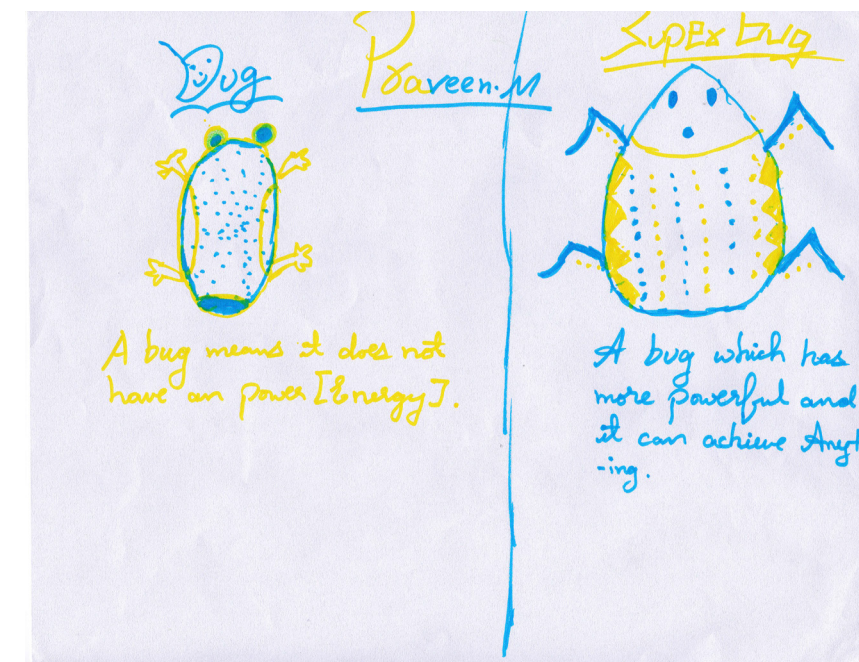 Bug
Praveen.M
Super bug
A bug means it does not
have an power [Energy].
A bug which has
more powerful and
it can achieve Anyt
-ing.